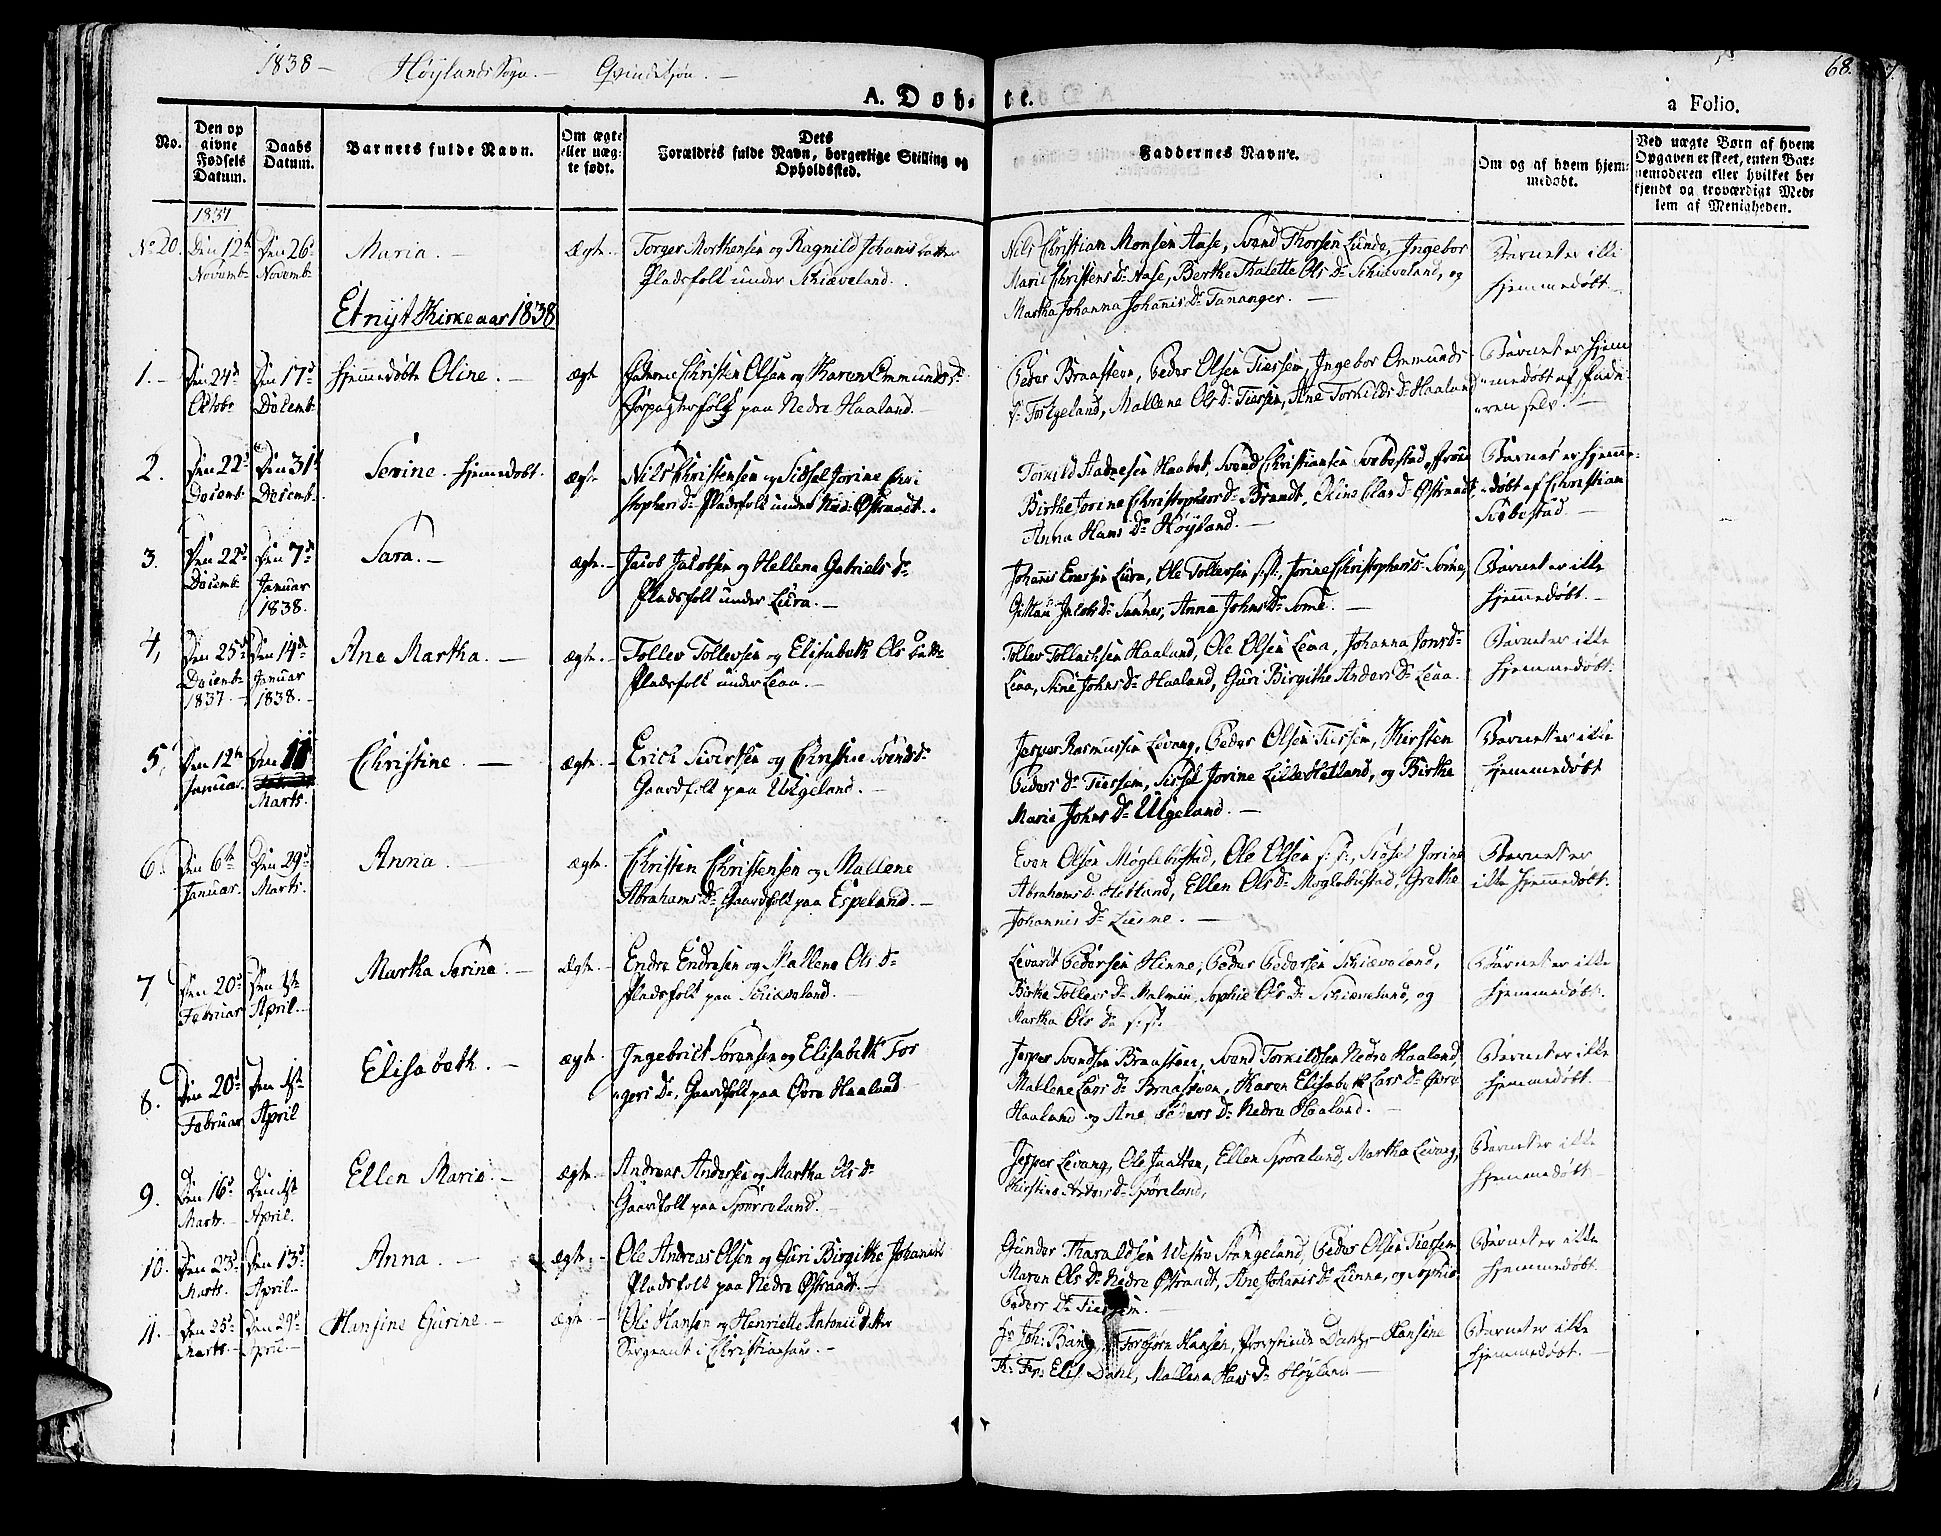 1838 – Høylands Sogn. – Qvindekjøn. –
68.
A. Døb- te.
a Folio.
No.
Den op
givne
Fødsels
Datum.
Daabs
Datum.
Barnets fulde Navn.
Om ægte
eller uæg-
te født.
Dets
Forældris fulde Navn, borgerlige Stilling og
Opholdssted.
Faddernes Navne.
Om og af hvem hjem-
medøbt.
Ved uægte Børn af hvem
Opgaven er skeet, enten Bar-
nemoderen eller hvilket be-
kjendt og troværdigt Med-
lem af Menigheden.
1837
No 20.
Den 12te
Novembr
Den 26de
Novembr
Maria. –
Ægte.
Torger Morthensen og Ragnild Johanis datter
Pladsfolk under Schiæveland.
Nils Christian Monsen Aase, Svend Thorsen Lunde, Ingebor
Marie Christens Dr Aase, Berthe Thalette Ols Dr Schiæveland, og
Martha Johanna Johanis Dr Tananger. –
Barnet er illi
hjemmedøbt. –
Et nyt Kirkeaar 1838
1. –
Den 24de
Oktobr
Den 17de
Decemb.
hjemmedøbte Oline. –
ægte
Christen Olsen og Karen Ommunds Dr
Forpagterfolk paa Nedre Haaland. –
Peder Braasteen, Peder Olsen Tiessem, Ingebor Ommunds
Dr Forsgeland, Mallene Ols Dr Tiessem, Ane Torkilds Dr Haaland
Barnet er hjem
medøbt af Fade-
ren selv. –
2.
Den 22de
Decemb.
Den 31te
Decemb.
Serine. hjemedøbt.
ægte
Nils Christensen og Sidsel Jorine Chri
stophers Dr Pladsfolk under Ned: Østraadt.
Torkild Aadnesen Haabet, Svend Christiansen Svebestad,
Birthe Jorine Christophers Dr Brandt, Oline Elas Dr Østraadt,
Anna Hans Dr Høyland. –
Barnet er hjemme-
døbt af Christian
Svebestad. –
3.
Den 22de
Decemb.
Den 7de
Januar
1838.
Sara. –
ægte. –
Jacob Jacobsen og Hellena Gabriels Dr
Pladsfolk under Lura. –
Johannis Evertsen Lura, Ole Tollevsen s: st:, Jorine Christophers Dr Some,
Gittau Jacobs Dr Sannes, Anna Johns Dr Some. –
Barnet er ikke
hjemmedøbt. –
4,
Den 25de
Decemb.
1837. –
Den 14de
Januar
1838. –
Ane Martha. –
ægte. –
Tollev Tollevsen og Elisabeth Ols datter
Pladsfolk under Leaa. –
Tollev Tollachsen Haaland, Ole Olsen Leaa, Johanna Jons Dr
Leaa, Sine Johns Dr Haaland, Guri Birgithe Anders Dr Leaa. –
Barnet er ikke
hjemmedøbt.
5,
Den 12te
Januar.
Den 11
Marts.
Christine. –
ægte. –
Erich Sivertsen og Christine Svends Dr
Gaardfolk paa Uelgeland. –
Jesper Rasmussen Levang, Peder Olsen Tiessem, Kirsten
Peders Dr Tiessem, Sidsel Jorine Lille Hetland, og Birthe
Marie Johns Dr Uelgeland. –
Barnet er ikke
hjemmedøbt
6.
Den 6te
Januar.
Den 29de
Marts.
Anna. –
ægte.
Christen Christensen og Mallene
Abrahams Dr Gaardfolk paa Espeland. –
Even Olsen Møglebustad, Ole Olsen s: st:, Sidsel Jorine
Abrahams Dr Hetland, Ellen Ols Dr Møglebustad, Grethe
Johannis Dr Liesne. –
Barnet er
ikke hjemmedøbt.
7
Den 20de
Februar
Den 1ste
April. –
Martha Serine. –
ægte. –
Endre Endresen og Mallene Ols Dr
Pladsfolk paa Schiæveland. –
Levard Pedersen Hinne, Peder Pedersen Schiæveland,
Birthe Tollevs Dr Malmin, Sophie Ols Dr Schiæveland, og
Martha Ols Dr s: st:
Barnet er ikke
hjemmedøbt.
8.
Den 20de
Februar
Den 1ste
April
Elisabeth. –
ægte. –
Ingebrict Sørensen og Elisabeth Tor
geris Dr, Gaardfolk paa Øvre Haaland
Jesper Svendsen Braasteen, Svend Torkildsen Nedre Haaland,
Mallene Lars Dr Braasteen, Karen Elisabeth Lars Dr Øvre
Haaland og Ane Peders Dr Nedre Haaland. –
Barnet er ikke
hjemmedøbt. –
9.
Den 16de
Marts. –
Den 1ste
April.
Ellen Maria. –
ægte. –
Andreas Andersen og Martha Ols Dr
Gaardfolk paa Spørreland. –
Jesper Levang, Ole Jaatten, Ellen Spøreland, Martha Levang,
Kirstine Anders Dr Spøreland,
Barnet er ikke
hjemmedøbt. –
10.
Den 23de
Marts.
Den 13de
April. –
Anna. –
ægte. –
Ole Andreas Olsen og Guri Birgithe Johannis
Pladsfolk paa Nedre Østraadt. –
Gunder Tharaldsen Vestre Stangeland, Peder Olsen Tiessem
Maren Ols Dr Nedre Østraadt, Ane Johanis Dr Lunne, og Sophie
Peders Dr Tiessem. –
Barnet er ikke
hjemmedøbt.
11.
Den 25de
Marts. –
Den 29de
April. –
Hansine Gurine. –
ægte. –
Ole Hansen og Henriette Antonie Datter
Sergeant i Christianssand. –
Hr Joh: Bang, Torbjørn Hansen, Dahl, Hansine
Th: Elis. Dahl, Mallena Hans Dr Høyland –
Barnet er ikke
hjemmedøbt. –